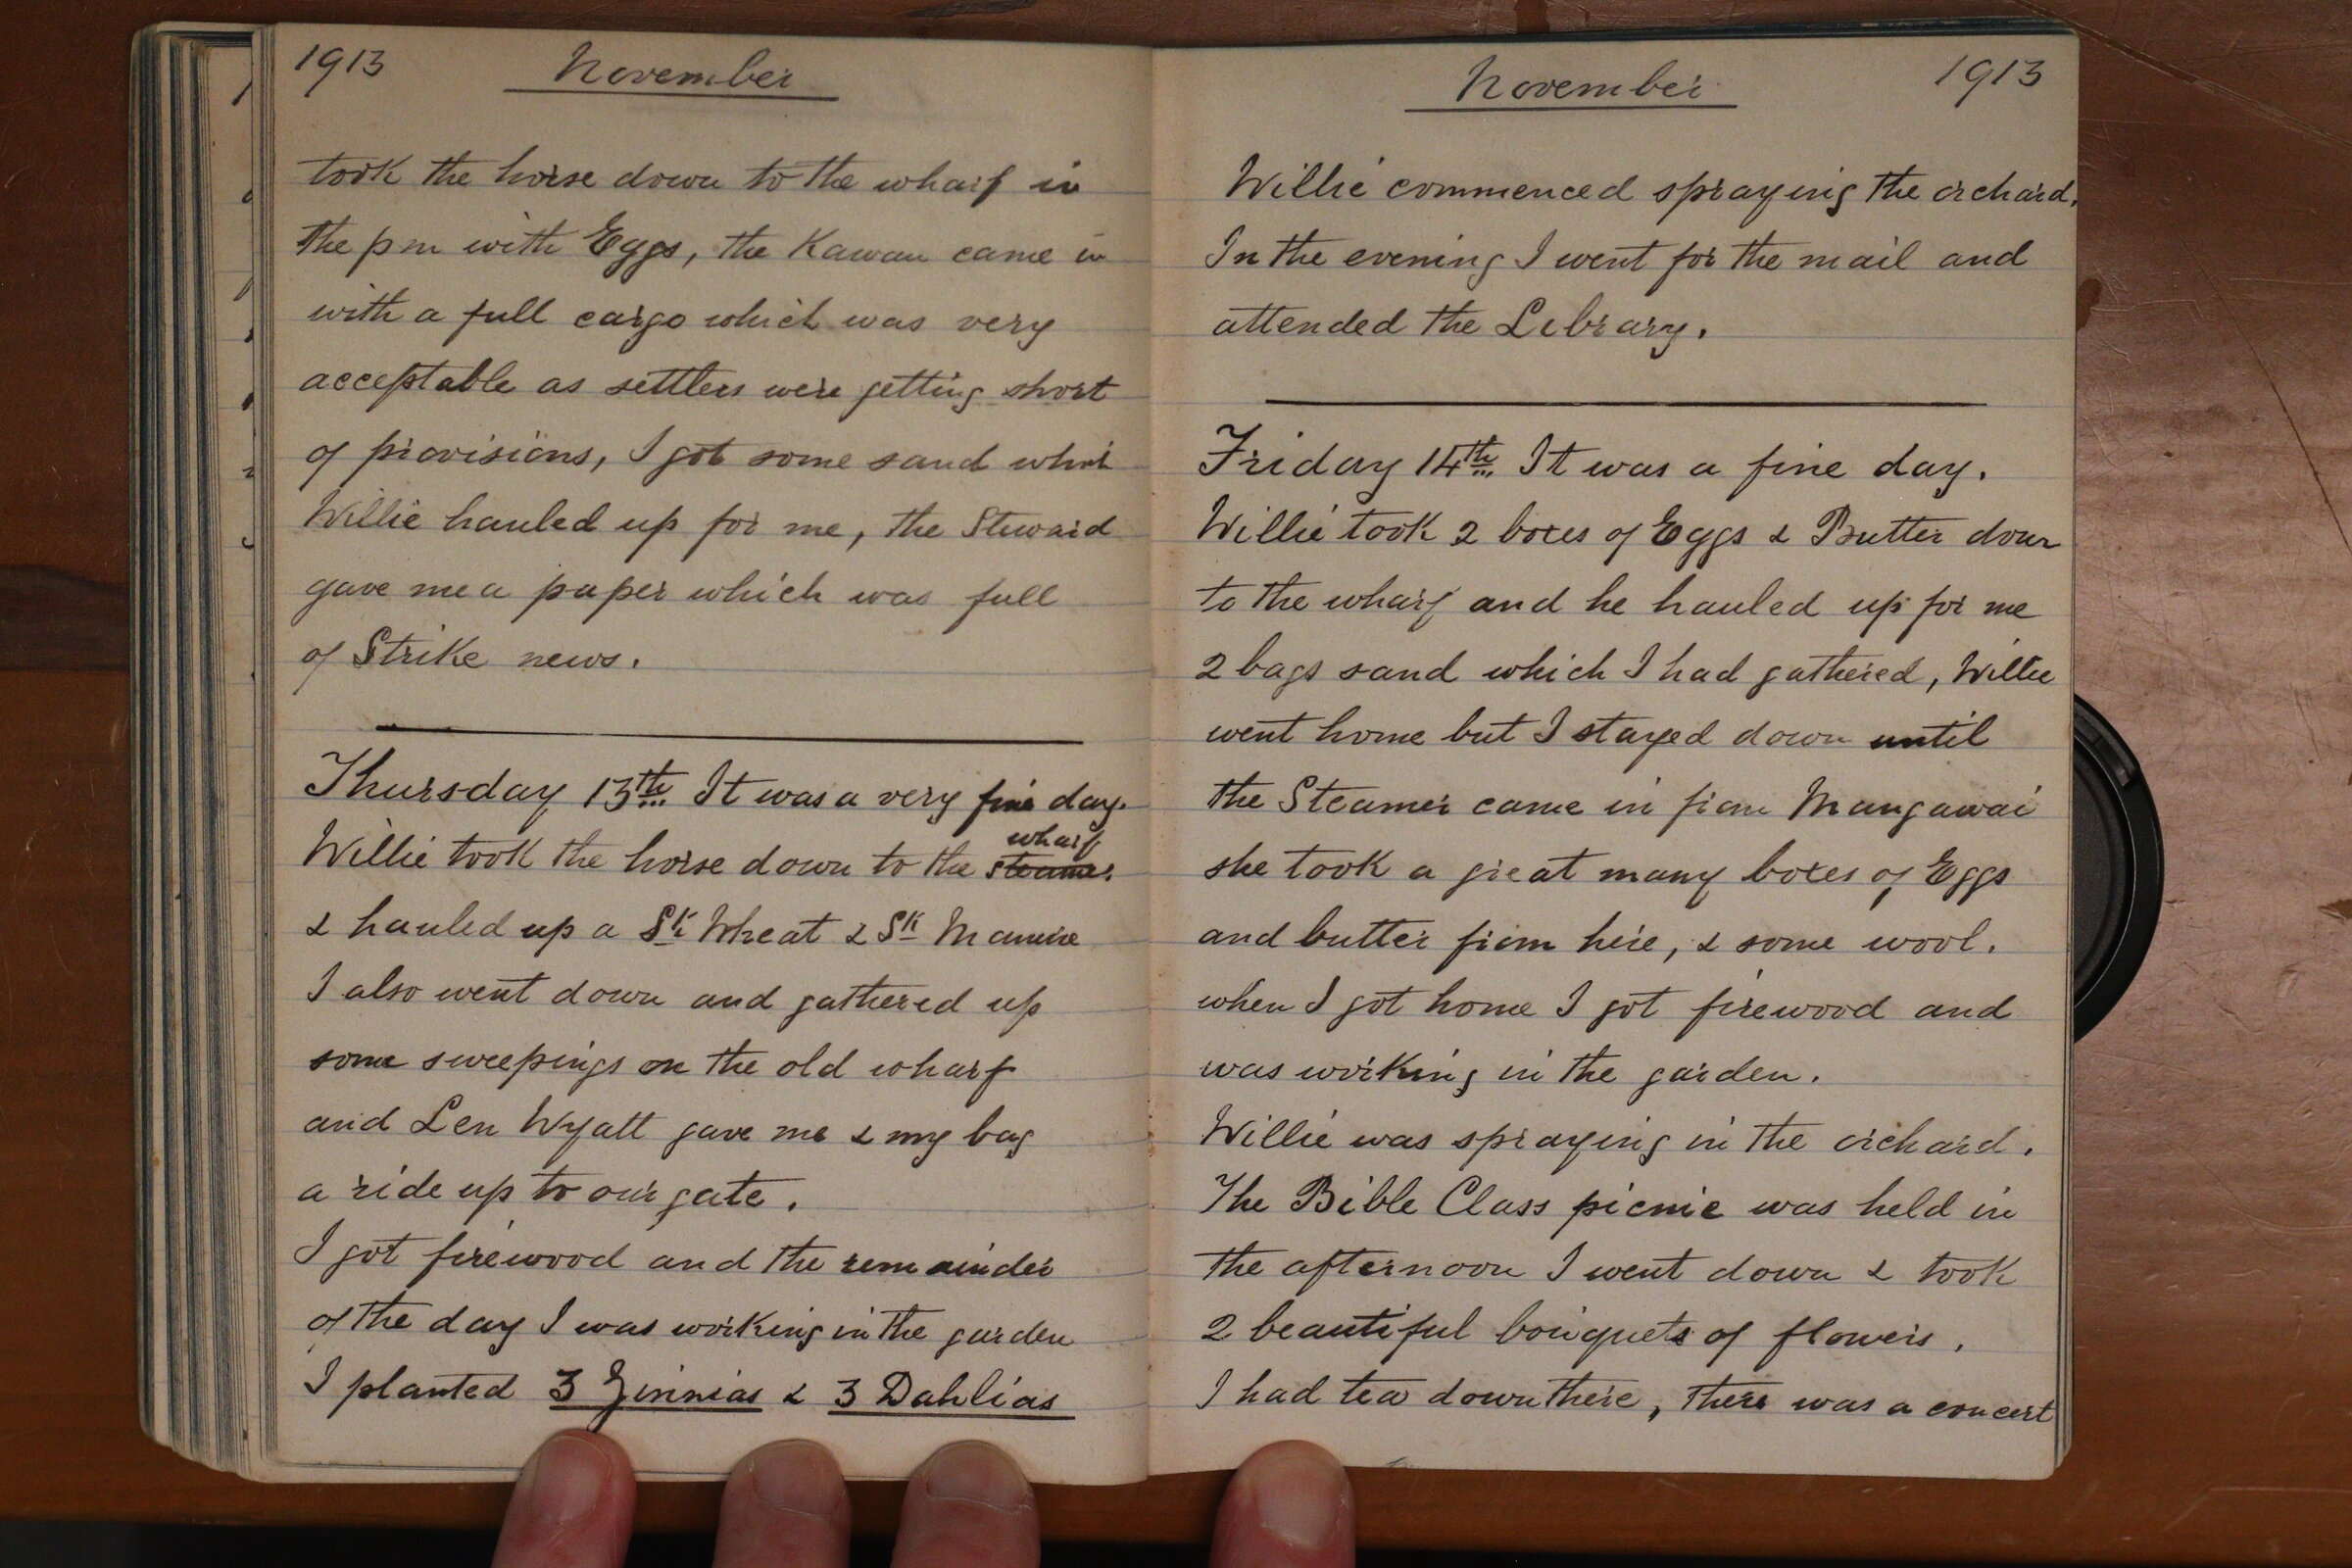 1913 November
took the horse down to the wharf in
the pm with Eggs, the Kawau came in
with a full cargo which was very
acceptable as settlers were getting short
of provisions, I got some sand which
Willie hauled up for me, the Steward
gave me a paper which was full
of Strike news.
Thursday 13th It was a very fine day.
wharf
Willie took the horse down to the steamer
& hauled up a Sk Wheat & Sk Manure
I also went down and gathered up
some sweepings on the old wharf
and Len Wyatt gave me & my bag
a ride up to our gate.
I got firewood and the remainder
of the day I was working in the garden
I planted 3 Zinnias & 3 Dahlias
November 1913
Willie commenced spraying the orchard.
In the evening I went for the mail and
attended the Library.
Friday 14th It was a fine day.
Willie took 2 boxes of Eggs & Butter down
to the wharf and he hauled up for me
2 bags sand which I had gathered, Willie
went home but I stayed down until
the Steamer came in from Mangawai
she took a great many boxes of Eggs
and butter from here, & some wool.
when I got home I got firewood and
was working in the garden.
Willie was spraying in the orchard.
The Bible Class picnic was held in
the afternoon I went down & took
2 beautiful bouquets of flowers.
I had tea down there, there was a concert